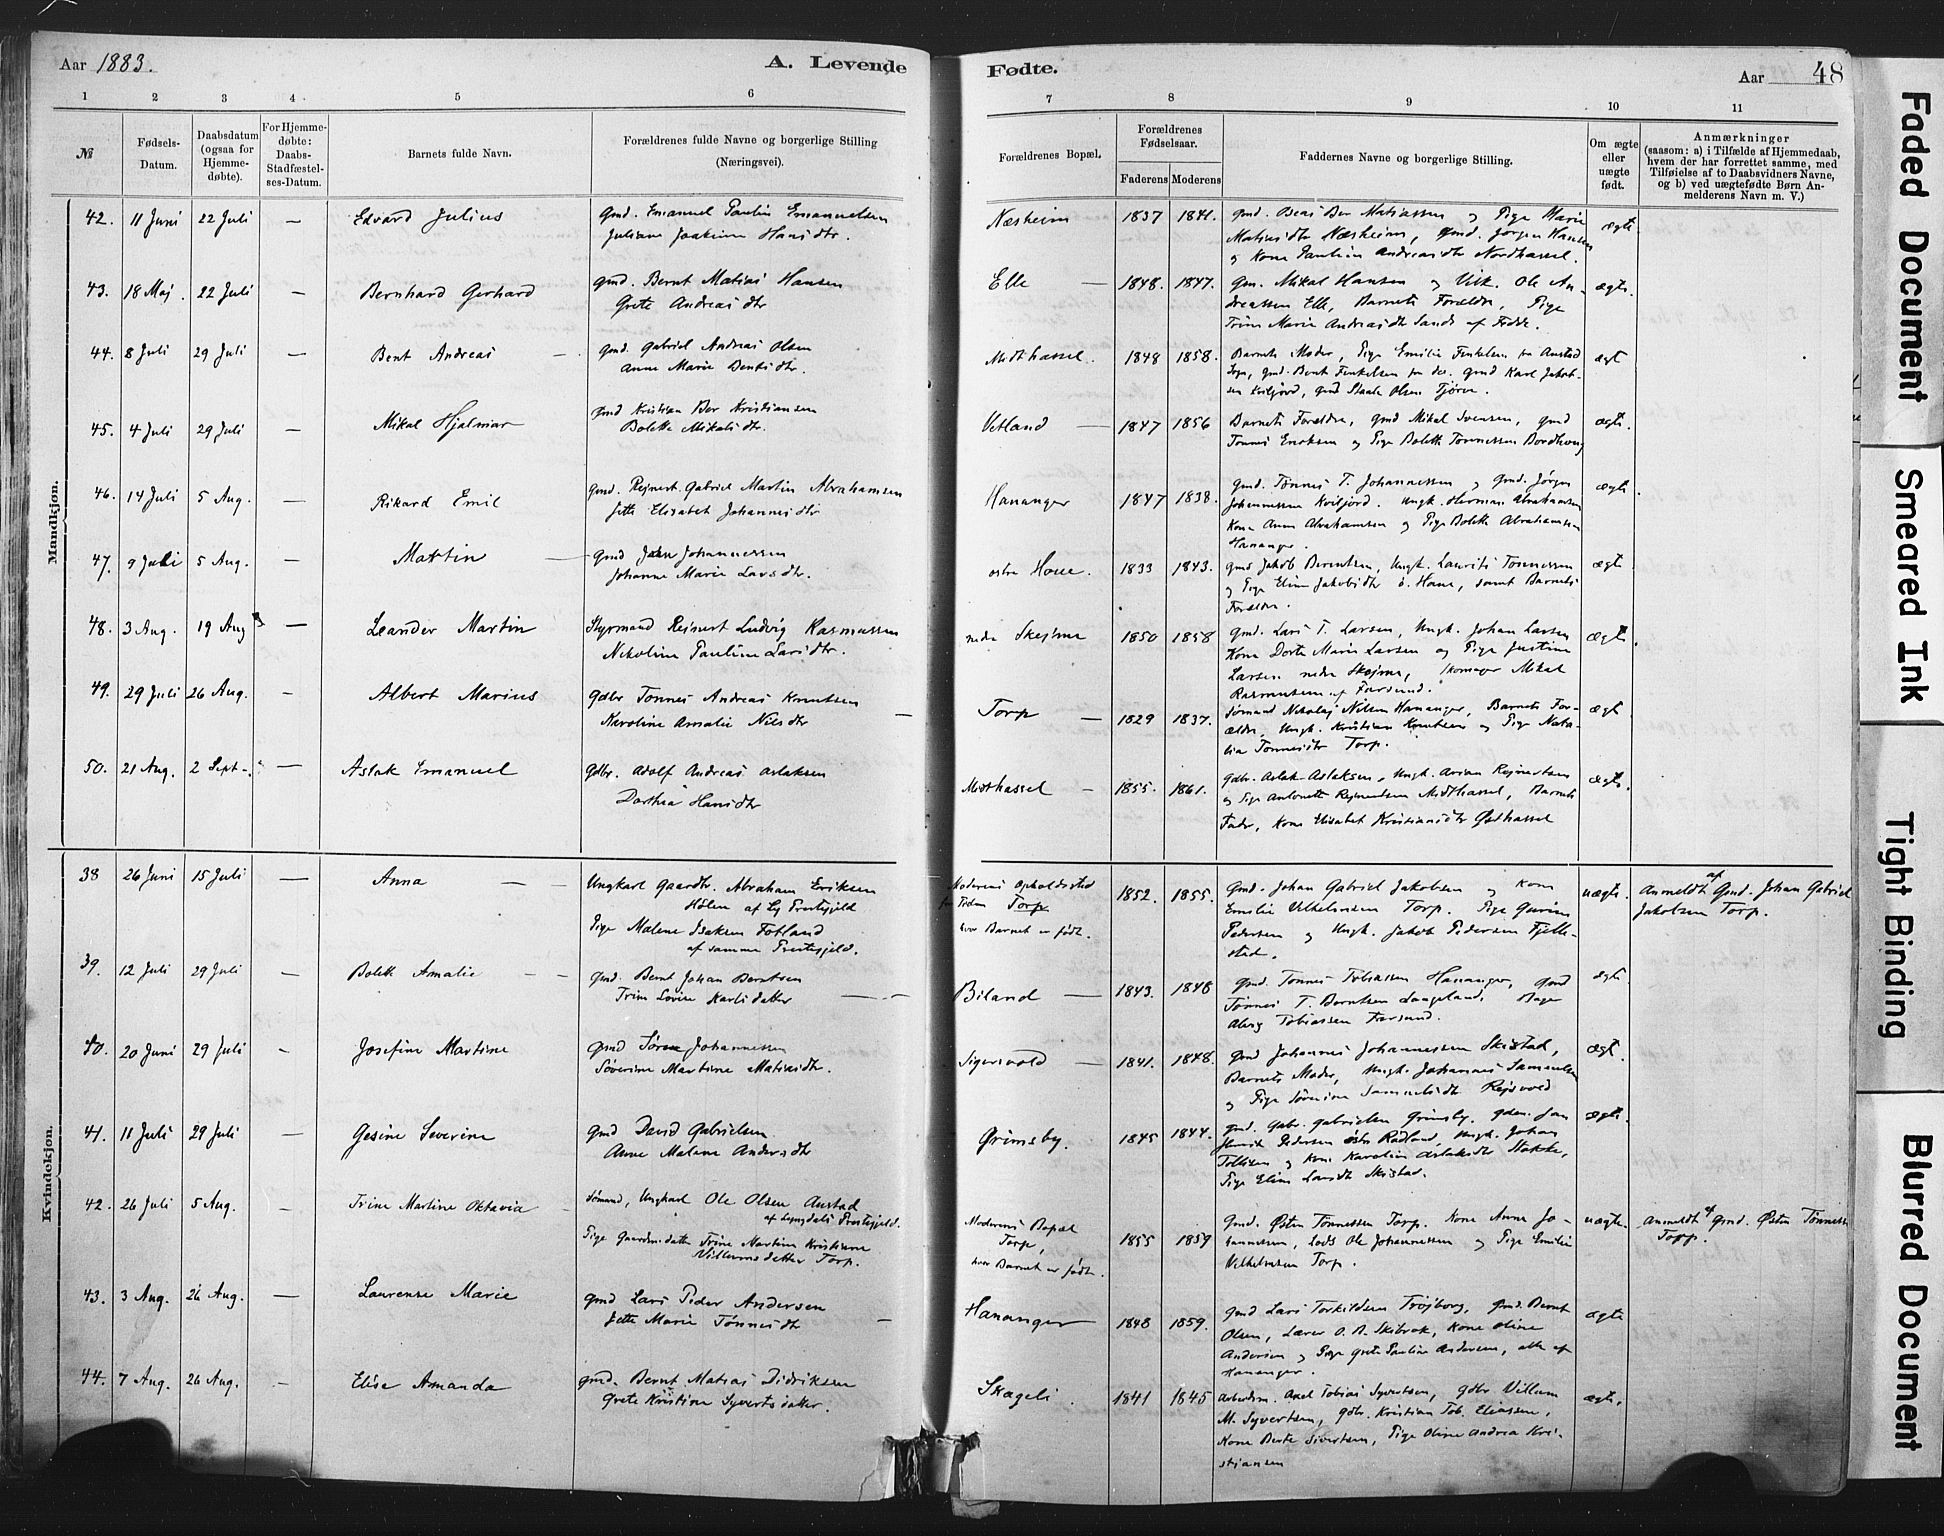 Aar 1883.
A. Levende
Fødte.
Aar
48
1 2 3 4 5 6
7 8 9 10 11
№
Fødsels-
Datum.
Daabsdatum
(ogsaa for
Hjemme-
døbte).
For Hjemme-
døbte:
Daabs-
Stadfæstel-
ses-Datum.
Barnets fulde Navn.
Forældrenes fulde Navne og borgerlige Stilling
(Næringsvei).
Forældrenes Bopæl.
Forældrenes
Fødselsaar.
Faderens Moderens
Faddernes Navne og borgerlige Stilling.
Om ægte
eller
uægte
født.
Anmærkninger
(saasom: a) i Tilfælde af Hjemmedaab,
hvem der har forrettet samme, med
Tilføielse af to Daabsvidners Navne,
og b) ved uægtefødte Børn An-
melderens Navn m. V.)
Mandkjøn.
42. 11 Juni 22 Juli — Edvard Julius
Gmd. Emanuel Paulin Emanuelsen
Juliane Joakime Hansdtr.
Næsheim 1837 1841.
Gmd. Ber Matiassen og Pige Marie
Matiasdtr Næsheim, Gmd. Jørgen Hansen
og Kone Pauline Andreasdtr Nordhassel.
ægte
43. 18 Maj. 22 Juli — Bernhard Gerhard
Gmd. Bernt Matias Hansen
Grete Andreasdtr
Elle — 1848. 1847.
Gm. Mikal Hansen og Ole An-
dreassen Elle, Barnets Forældre, Pige
Trine Marie Andreasdtr Sande af
ægte.
44. 8 Juli 29 Juli — Bent Andreas —
Gmd. Gabriel Andreas Olsen
Anne Marie Bentsdtr.
Midthassel. 1848 1858.
Barnets Moder, Pige Emilie Fenkelsen fra Austad
Sogn, Gmd. Bernt Fenkelsen fra do. Gmd Karl Jakob-
sen Kviljord, Gmd Staale Olsen Tjørve.
ægte
45. 4 Juli 29 Juli — Mikal Hjalmar
Gmd Kristian Ber Kristiansen
Bolette Mikalsdtr.
Vetland — 1847 1856
Barnets Forældre, Gmd Mikal Svensen, Gmd
Tønnes Eriksen og Pige Bolette Tønnessen Bordhoug
ægte.
46. 14 Juli 5 Aug. — Rikard Emil
Gmd. Rejnert Gabriel Martin Abrahamsen
Jette Elisabet Johannesdtr
Hananger 1847 1838.
Gmd. Tønnes T. Johannessen og Gmd. Jørgen
Johannessen Kviljord. Ungk. Herman Abrahamsen
Kone Anne Abrahamsen og Pige Bolette Abrahamsen
Hananger.
ægte
47. 9 Juli 5 Aug. — Martin —
Gmd Johannessen
Johanne Marie Larsdtr.
østre Haue. 1833 1843.
Gmd Jakob Berentsen, Ungk. Laurits Tønnessen
og Pige Eline Jakobsdtr ö. Haue, samt Barnets
Forældre.
ægte
48. 3 Aug. 19 Aug — Leander Martin
Styrmand Rejnert Ludvig Rasmussen
Nikoline Pauline Larsdtr.
nedre Skejme 1850 1858
Gmd. Lars T. Larsen, Ungk. Johan Larsen
Kone Dorte Marie Larsen og Pige Justine
Larsen nedre Skejme, Skomager Mikal
Rasmussen af Farsund.
ægte
49. 29 Juli 26 Aug. — Albert Marius
Gdbr Tønnes Andreas Knutsen
Karoline Amalie Nilsdtr —
Torp — 1829 1837.
Sømand Nikolaj Nilsen Hananger, Barnets For-
ældre, Ungk. Kristian Knutsen og Pige Nata-
lia Tønnesdtr Torp.
ægte
50. 21 Aug. 2 Sept. — Aslak Emanuel
Gdbr. Adolf Andreas Aslaksen
Dorthea Hansdtr
Midthassel — 1855. 1861.
Gdbr. Aslak Aslaksen, Ungk. Arian Rejnertsen
og Pige Antonette Rejnertsen Midthassel, Barnets
Fader, Kone Elisabet Kristiansdtr Østhassel
ægte.
Kvindekjøn.
38 26 Juni 15 Juli — Anna — —
Ungkarl Gaardbr. Abraham Eriksen
af Ly Prestegjeld
Pige Malene Isaksen Fotland
af samme Prestegjeld.
Moderens Opholdssted
Torp
hvor Barnet er født.
1852. 1855.
Gmd. Johan Gabriel Jakobsen og Kone
Emilie Vilhelmsen Torp. Pige Gurine
Pedersen og Ungk. Jakob Pedersen Fjelle-
stad.
uægte.
Anmeldt af Gmd. Johan Gabriel
Jakobsen Torp.
39. 12 Juli 29 Juli — Bolette Amalie — —
Gmd. Bernt Johan Berntsen
Trine Lovise Karlsdatter — —
Biland — 1843. 1848
Gmd. Tønnes Tobiassen Hananger, Gmd
Tønnes T. Berntsen Langeland, Bager
Tobiassen Farsund.
ægte
40. 20 Juni 29 Juli — Josefine Martine
Gmd Søren Johannessen
Søverine Martine Matiasdtr.
Sigersvold — 1841. 1848.
Gmd Johannes Johannessen Skeistad,
Barnets Moder, Ungk. Johannes Samuelsen
og Pige Sørenine Samuelsdtr Rejsvold
ægte.
41. 11 Juli 29 Juli — Gesine Severine
Gmd David Gabrielsen
Anne Malene Andersdtr
Grimsby. 1845 1844.
Gmd. Gabr. Gabrielsen Grimsby, Gdm. Jan
Henrik Pedersen østre Rødland, Ungk. Johan
Tollisen og Kone Karoline Aslaksdtr Stokke,
Pige Eline Larsdtr Skeistad.
ægte.
42. 26 Juli 5 Aug. — Trine Martine Oktavia —
Sømand, Ungkarl Ole Olsen Austad
af Lyngdals Prestegjeld.
Pige Gaardmdatter Trine Martine Kristiane
Villumsdatter Torp.
Moderens Bopæl
Torp,
hvor Barnet er født.
1855 1859
Gmd. Østen Tønnessen Torp. Kone Anne Jo-
hannessen, Lods Ole Johannessen og Pige Emilie
Vilhelmsen Torp.
uægte.
Anmeldt af Gmd. Østen Tønnessen
Torp.
43. 3 Aug. 26 Aug. — Laurense Marie
Gmd Lars Peder Andersen
Jette Marie Tønnesdtr —
Hananger 1848 1859.
Gmd Lars Torkildsen Trøjborg, Gmd. Bernt
Olsen, Lærer O. B. Skibrek, Kone Oline
Andersen og Pige Grete Pauline Andersen, alle af
Hananger.
ægte
44. 7 Aug. 26 Aug. — Elise Amanda
Gmd. Bernt Matias Didriksen
Grete Kristine Syvertsdatter.
Skageli. 1841 1845
Arbeidsm. Axel Tobias Syvertsen, Gdbr Villum
M. Syvertsen, Gdbr. Kristian Tob. Eliassen,
Kone Berte Sivertsen, Pige Oline Andrea Kri-
stiansen
ægte.
Faded Document
Smeared Ink
Tight Binding
Blurred Document